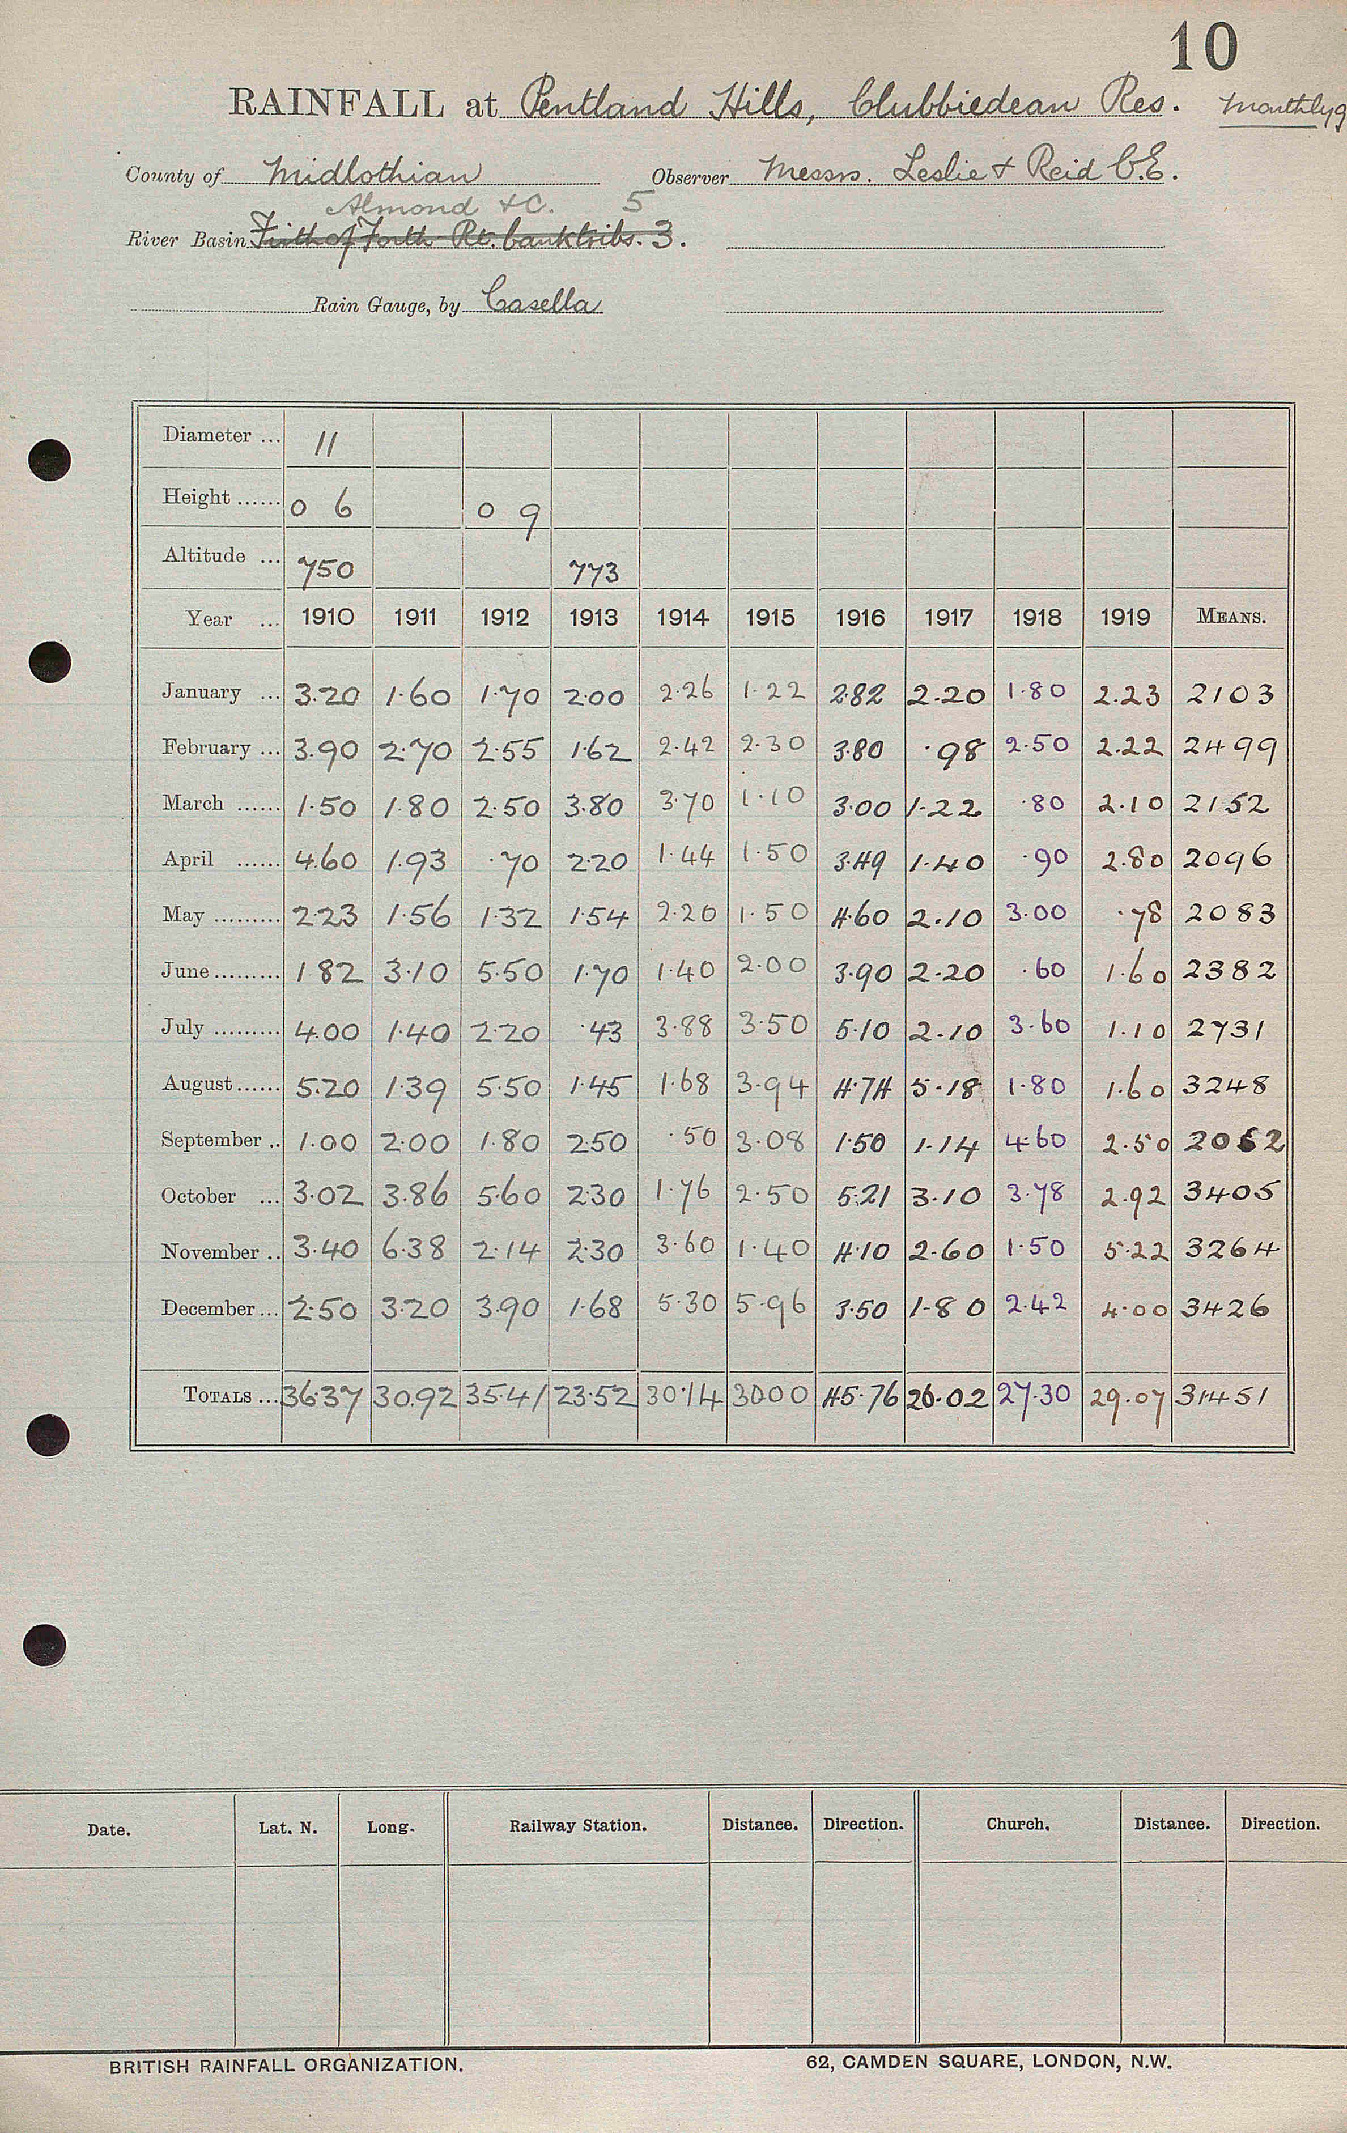 10
RAINFALL at Pentland Hills, Clubbiedean Res. Monthly g
County of Midlothian Observer Messrs. Leslie & Reid C.E.
Almond &C. 5
River Basin Firth of Forth Rt. bank tribs. 3.
Rain Gauge, by Casella
Diameter ... 11
Height ...... 0 6 0 9
Altitude ... 750 773
Year ... 1910 1911 1912 1913 1914 1915 1916 1917 1918 1919 MEANS.
January ... 3.20 1.60 1.70 2.00 2.26 1.22 2.82 2.20 1.80 2.23 2103
February ... 3.90 2.70 2.55 1.62 2.42 2.30 3.80 .98 2.50 2.22 2499
March ...... 1.50 1.80 2.50 3.80 3.70 1.10 3.00 1.22 .80 2.10 2152
April ...... 4.60 1.93 .70 2.20 1.44 1.50 3.49 1.40 .90 2.80 2096
May ......... 2.23 1.56 1.32 1.54 2.20 1.50 4.60 2.10 3.00 .78 2083
June ......... 1.82 3.10 5.50 1.70 1.40 2.00 3.90 2.20 .60 1.60 2382
July ......... 4.00 1.40 2.20 .43 3.88 3.50 5.10 2.10 3.60 1.10 2731
August ...... 5.20 1.39 5.50 1.45 1.68 3.94 4.74 5.18 1.80 1.60 3248
September .. 1.00 2.00 1.80 2.50 .50 3.08 1.50 1.14 4.60 2.50 2062
October ... 3.02 3.86 5.60 2.30 1.76 2.50 5.21 3.10 3.78 2.92 3405
November .. 3.40 6.38 2.14 2.30 3.60 1.40 4.10 2.60 1.50 5.22 3264
December ... 2.50 3.20 3.90 1.68 5.30 5.96 3.50 1.80 2.42 4.00 3426
TOTALS ... 36.37 30.92 35.41 23.52 30.14 30.00 45.76 26.02 27.30 29.07 31451
Date. Lat. N. Long. Railway Station. Distance. Direction. Church. Distance. Direction.
BRITISH RAINFALL ORGANIZATION. 62, CAMDEN SQUARE, LONDON, N.W.